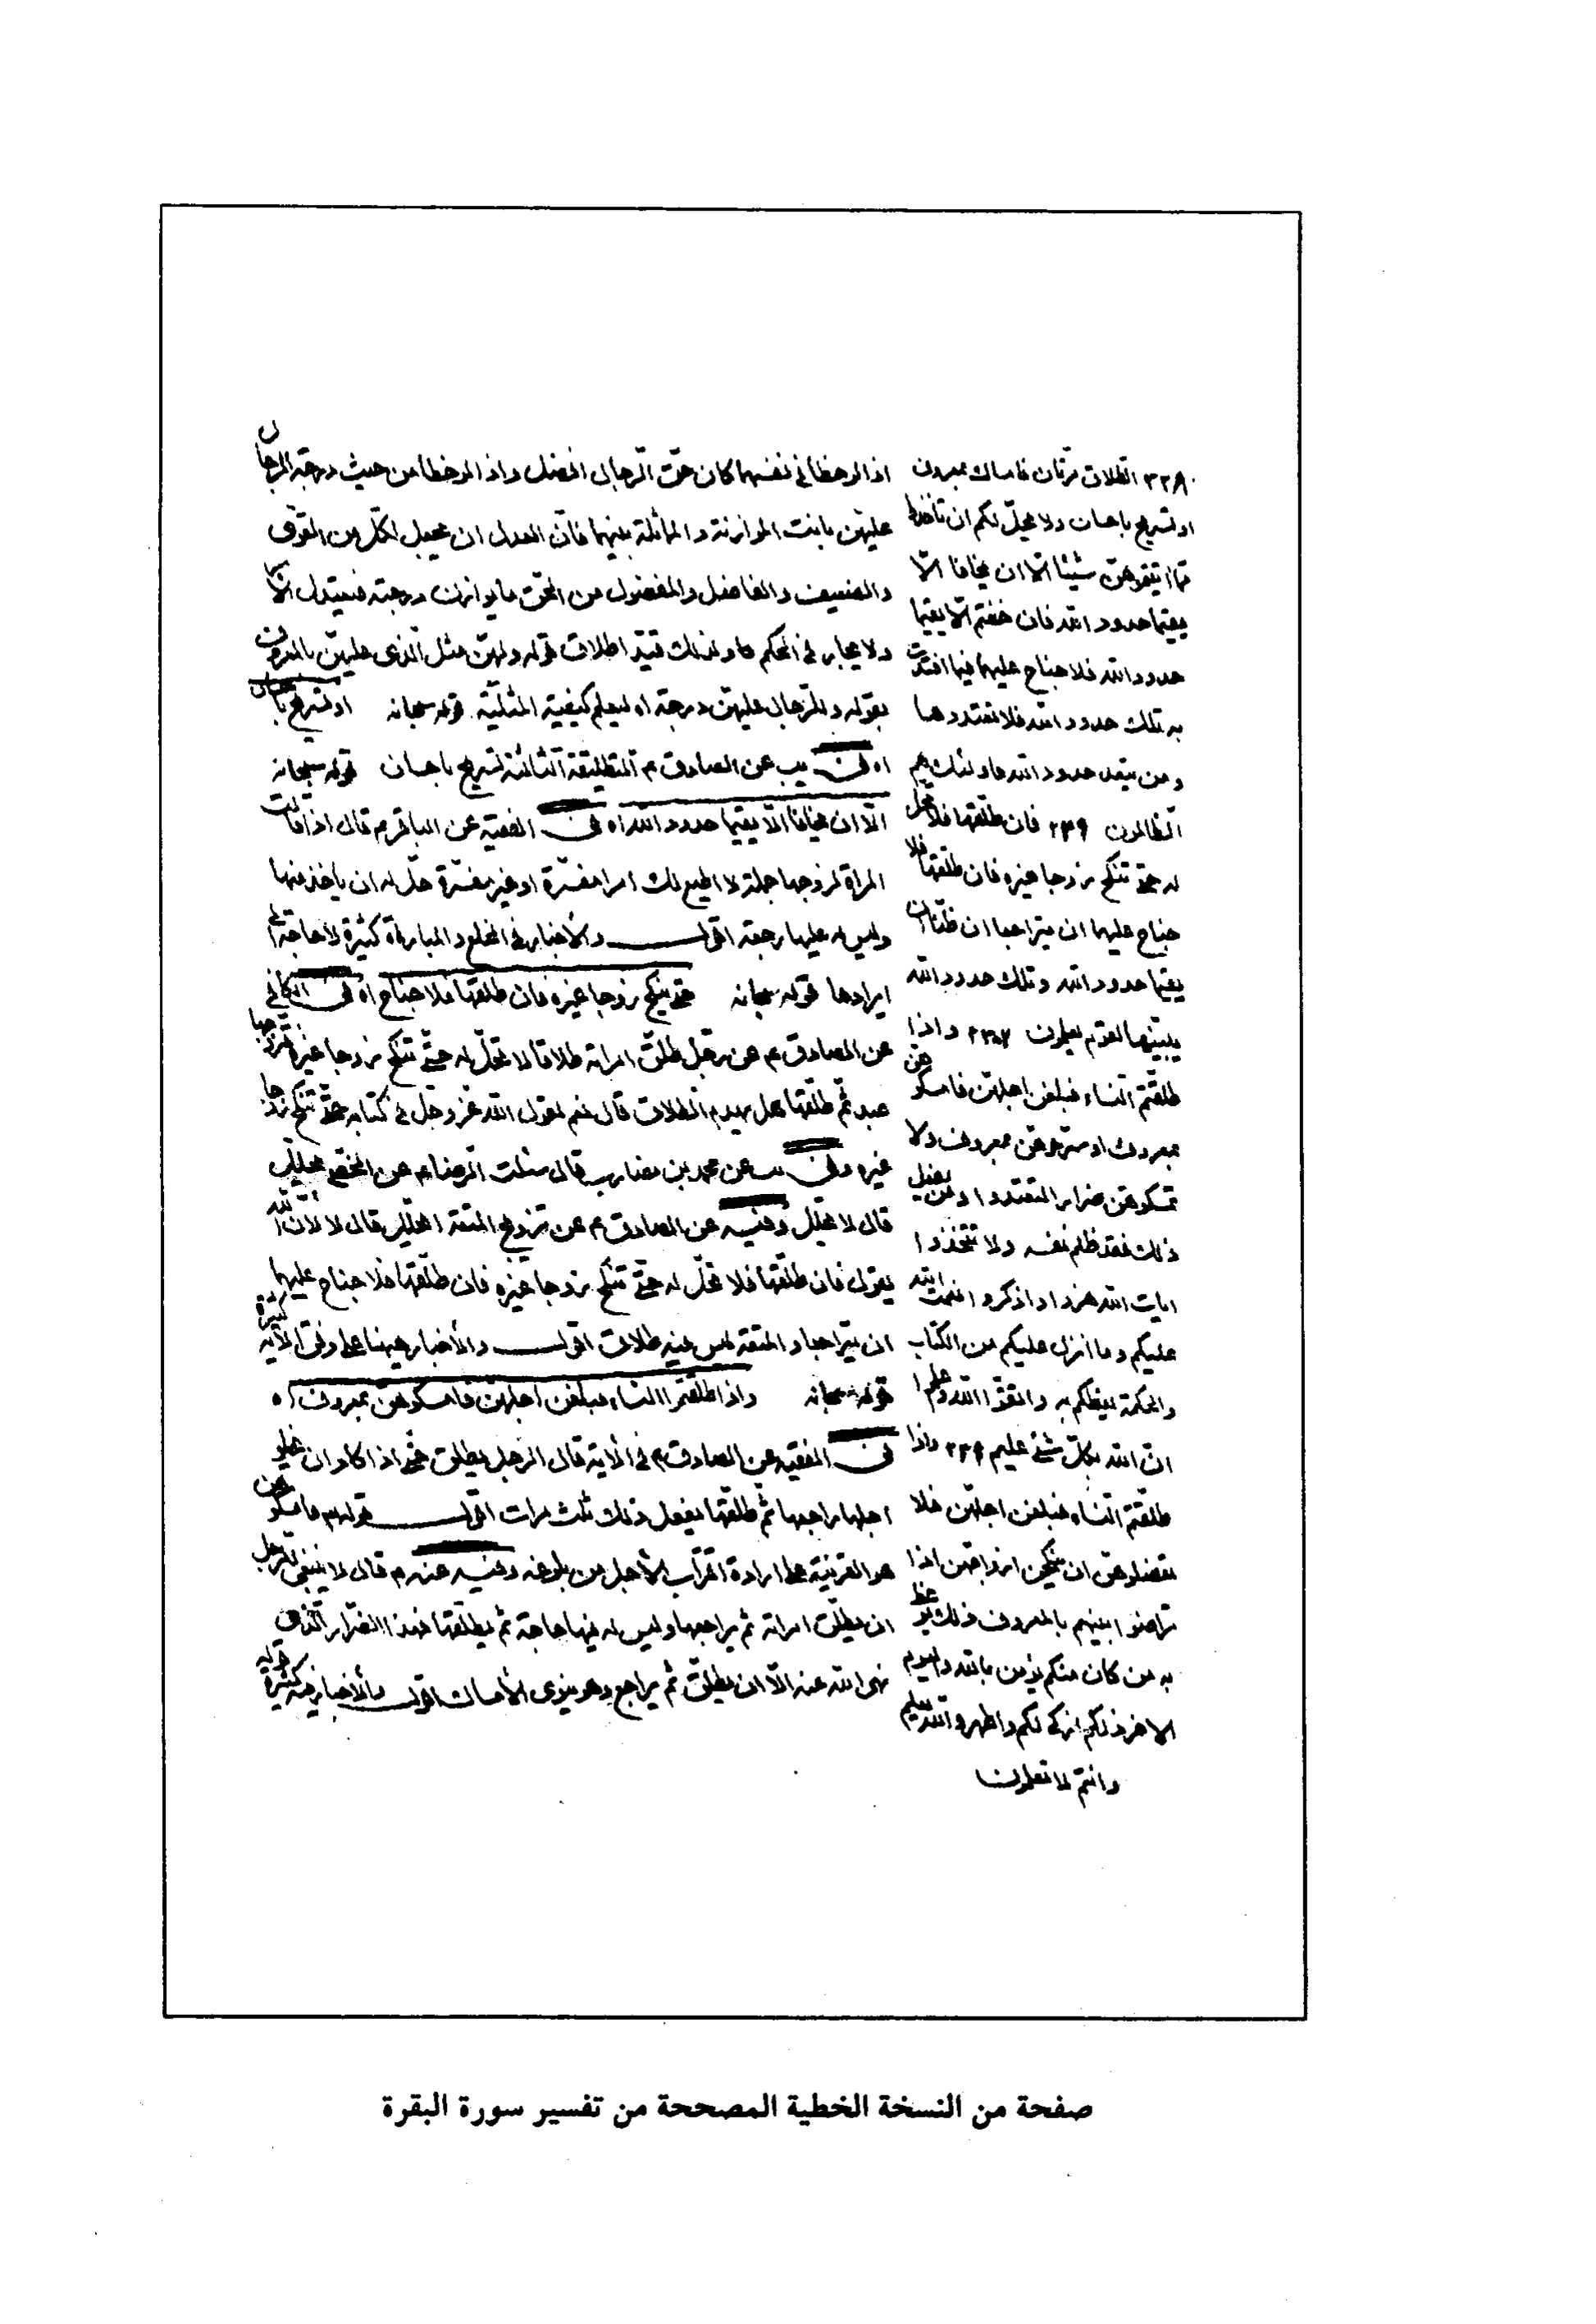 ٢٢٨ الطلاق مرّتان فامساك بمعروف
او تسريح باحسان ولا يحلّ لكم ان تأخذوا
ممّا اتيتموهنّ شيئا الّا ان يخافا الّا
يقيما حدود الله فان خفتم الّا يقيما
حدود الله فلا جناح عليهما فيما افتدت
به تلك حدود الله فلا تعتدوها
ومن يتعد حدود الله فاولئك هم
الظالمون ٢٢٩ فان طلّقها فلا تحل
له حتّى تنكح زوجا غيره فان طلّقها فلا
جناح عليهما ان يتراجعا ان ظنّا ان
يقيما حدود الله وتلك حدود الله
يبيّنها لقوم يعلمون واذا
طلّقتم النّساء فبلغن اجلهنّ فامسكوهن
بمعروف او سرّحوهنّ بمعروف ولا
تمسكوهنّ ضرارا لتعتدوا ومن يفعل
ذلك فقد ظلم نفسه ولا تتّخذوا
ايات الله هزوا واذكروا نعمت الله
عليكم وما انزل عليكم من الكتاب
والحكمة يعظكم به واتقوا الله واعلموا
انّ الله بكلّ شئ عليم واذا
طلّقتم النّساء فبلغن اجلهنّ فلا
تعضلوهنّ ان ينكحن ازواجهنّ اذا
تراضوا بينهم بالمعروف ذلك يوعظ
به من كان منكم يؤمن بالله واليوم
الاخر ذلكم ازكى لكم واطهر والله يعلم
وانتم لا تعلمون
اذا لوحظا في نفسهما كان حقّ الرّجال افضل واذا لوحظا من حيث درجة الرجال
عليهنّ بانت الموازنة والمماثلة بينهما فانّ العدل ان يجعل لكلّ من القوّى
والضعيف والفاضل والمفضول من الحقّ ما يوازن درجته فيعتدل
ولا يجابر في الحكم ولذلك قيّد اطلاق قوله ولهنّ مثل الّذى عليهنّ بالمعروف
بقوله وللرّجال عليهنّ درجة اه ليعلم كيفية المثليّة قوله سبحانه او تسريح باحسان
اه فى يب عن الصادق ع التطليقة الثّالثة تسريح باحسان قوله سبحانه
الّا ان يخافا الّا يقيما حدود الله اه فى الفقيه عن الباقر ع قال اذا قالت
المراة لزوجها جملة لا اطيع لك امرا مفسّرة او غير مفسّرة حلّ له ان ياخذ منها
وليس له عليها رجعة اقول والأخبار في الخلع والمباراة كثيرة لا حاجة الى
ايرادها قوله سبحانه حتّى ينكح زوجا غيره فان طلقها فلا جناح اه فى الكافي
عن الصادق ع عن رجل طلّق امراته طلاقا لا تحلّ له حتّى تنكح زوجا غيره فتزوجها
عبد ثمّ طلّقها هل يهدم الطلاق قال نعم لقول الله عزّ وجلّ في كتابه حتّى تنكح زوجا
غيره وفى يب عن محمد بن مضارب قال سئلت الرّضا ع عن الخصىّ يحلّل
قال لا يحلّل وفيه عن الصادق ع عن تزويج المتعة ايحلّل قال لا لانّ الله
يقول فان طلّقها فلا تحلّ له حتّى تنكح زوجا غيره فان طلّقها فلا جناح عليهما
ان يتراجعا والمتعة ليس فيه طلاق اقول والأخبار هيهنا على وفق الآية كثيرة
قوله سبحانه واذا طلّقتم النّساء فبلغن اجلهنّ فامسكوهنّ بمعروف اه
فى الفقيه عن الصادق ع في الآية قال الرجل يطلق حتّى اذا كاد ان يخلو
اجلها راجعها ثمّ طلّقها يفعل ذلك ثلث مرات اقول قوله فامسكوهن
هو القرينة على ارادة اقتراب الأجل من بلوغه وفيه عنه ع قال لا ينبغى للرجل
ان يطلّق امراته ثم يراجعها وليس له فيها حاجة ثم يطلّقها فهذا الضرار الّذى
نهى الله عنه الّا ان يطلق ثم يراجع وهو ينوى الأمساك اقول والأخبار فيه كثيرة
قوله
صفحة من النسخة الخطية المصححة من تفسير سورة البقرة